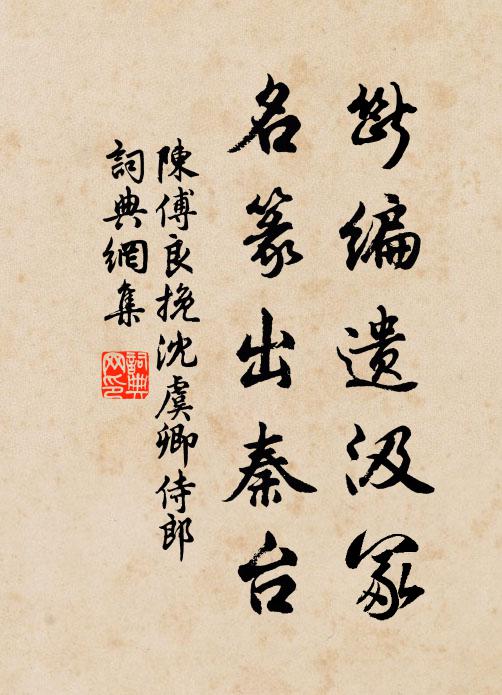 断编遗汲冢
名篆出秦台
陳傅良挽沈虞卿侍郎
詞典網集
詞典網印